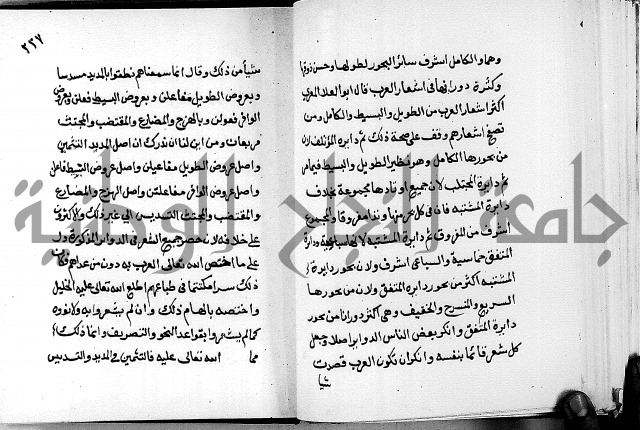 وهما والكامل اشرف سائر البحور لطولها وحسن ذوقها
وكثرة دورانها في اشعار العرب قال ابو العلا المعري
اكثر اشعار العرب من الطويل والبسيط والكامل ومن
تصفح اشعارهم وقف على صحة ذلك ثم دايرة المؤتلف لان
من بحورها الكامل وهو نظير الطويل والبسيط فيما مر
ثم دايرة المجتلب لان جميع اوتادها مجموعة بخلاف
دايرة المشتبه فان في كل بحر منها وتدا مفروقا والمجموع
اشرف من المفروق ثم دايرة المشتبه لانها سباعية ودايرة
المتفق خماسية والسباعي اشرف ولان بحور دايرة
المشتبه اكثر من بحور دايرة المتفق ولان من بحورها
السريع والمنسرح والخفيف وهي اكثر دورانا من بحور
دايرة المتفق وانكر بعض الناس الدواير اصلا وجعل
كل شعر قائما بنفسه وانكر ان تكون العرب قصدت
شيا
٢٣٧
شيأ من ذلك وقال انما سمعناهم نطقوا بالمديد مسدسا
وبعروض الطويل مفاعلن وبعروض البسيط فعلن وبعروض
الوافر فعولن وبالهزج والمضارع والمقتضب والمجتث
مربعات ومن اين لنا ان ندرك ان اصل المديد التثمين
واصل عروض الطويل مفاعيلن واصل عروض البسيط فاعلن
واصل عروض الوافر مفاعلتن واصل الهزج والمضارع
والمقتضب والمجتث التسديس الى غير ذلك والاكثرون
على خلافه لان حصر جميع الشعر في الدواير المذكورة دل
على ما اختص الله تعالى العرب به دون من عداهم فكان
ذلك سرا مكتتما في طباعهم اطلع الله تعالى عليه الخليل
واختصه بالهام ذلك وان لم يشعروا به ولا نووه
كما لم يشعروا بقواعد النحو والتصريف وانما ذلك
مما الله تعالى عليه فالتثمين في المديد والتسديس
جامعة النجاح الوطنية